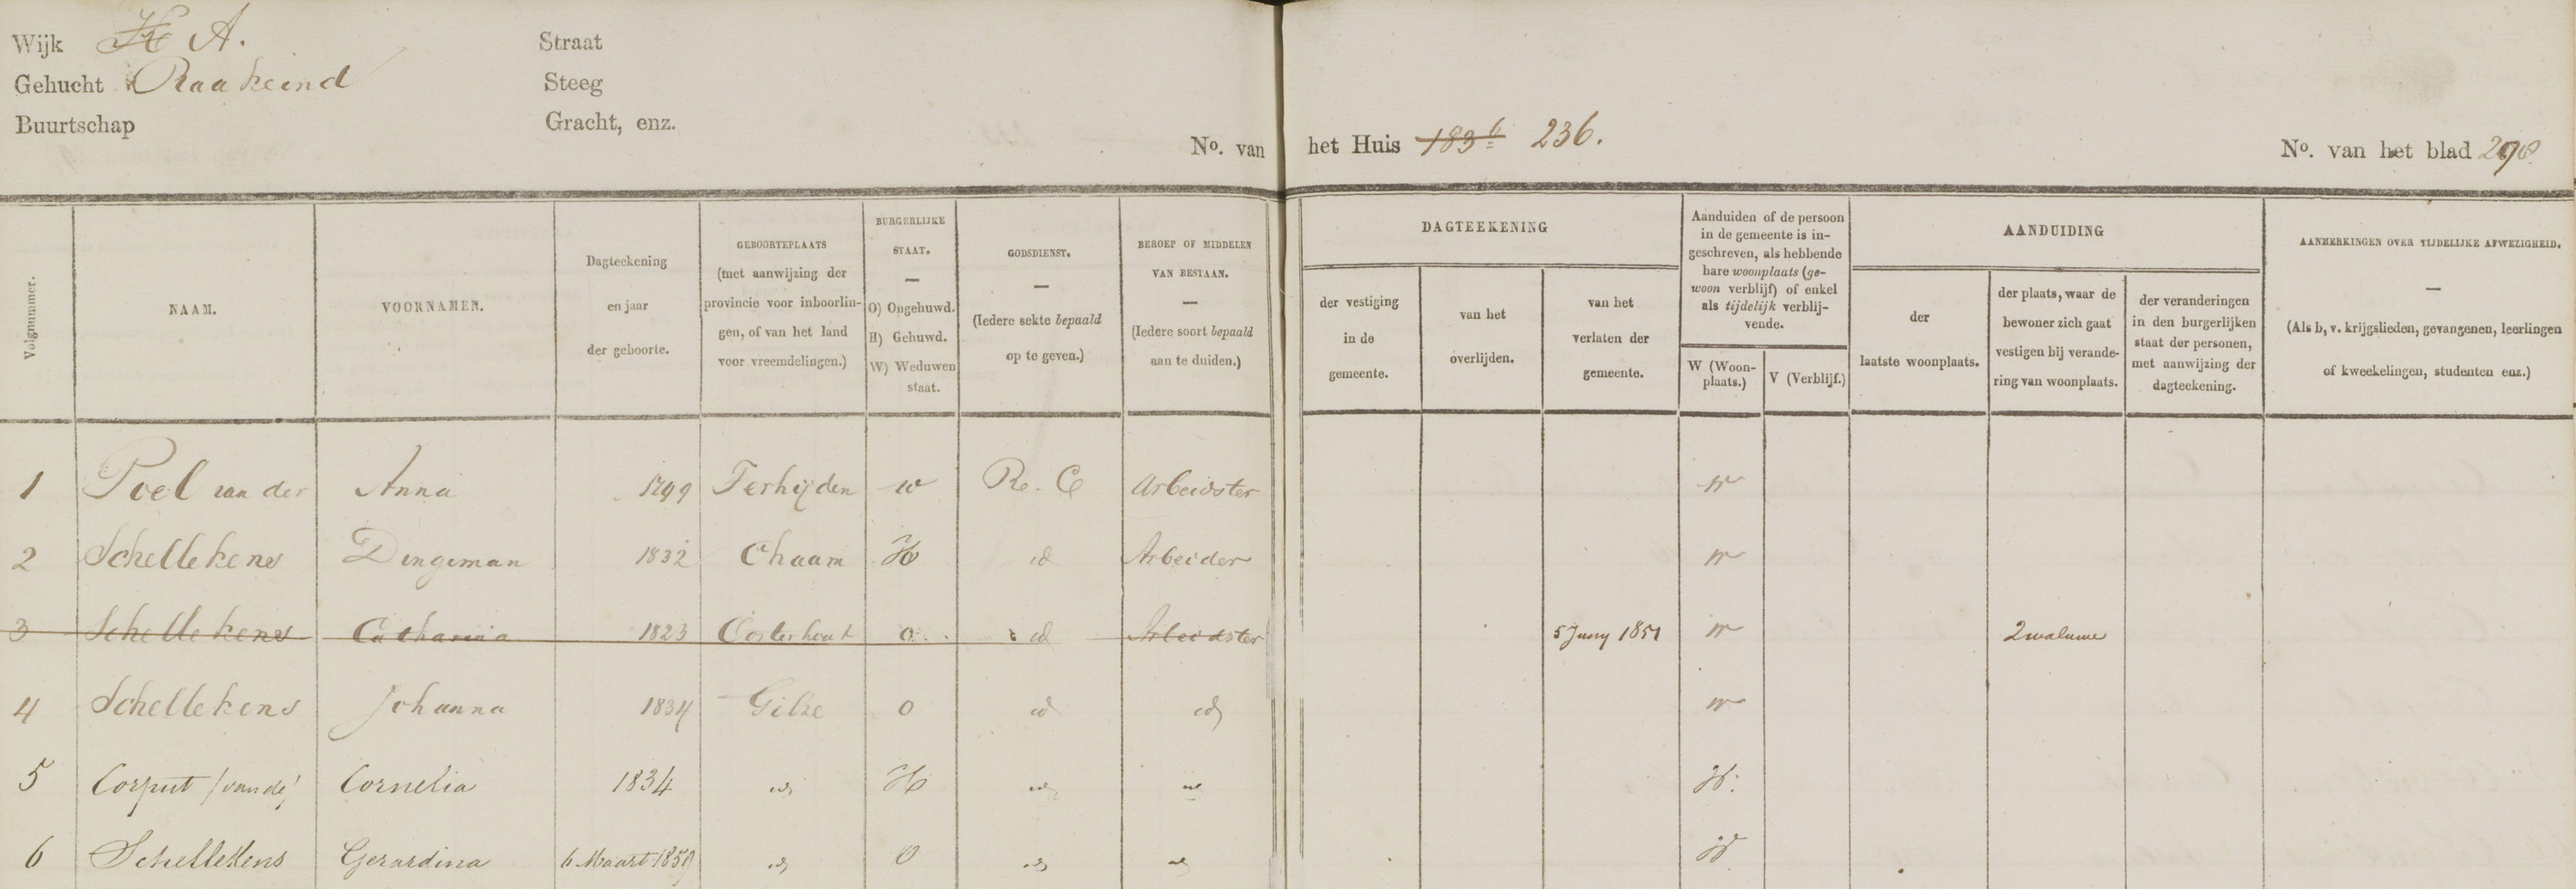 Wijk H A. Straat
Gehucht Raakeind Steeg
Buurtschap Gracht, enz.
No. van het Huis 183 6 236. No. van het blad 298
Volgnummer.
NAAM.
VOORNAMEN.
Dagteekening
en jaar
der geboorte.
GEBOORTEPLAATS
(met aanwijzing der
provincie voor inboorlin-
gen, of van het land
voor vreemdelingen.)
BURGERLIJKE
STAAT.
O) Ongehuwd.
H) Gehuwd.
W) Weduwen
staat.
GODSDIENST.
(Iedere sekte bepaald
op te geven.)
BEROEP OF MIDDELEN
VAN BESTAAN.
(Iedere soort bepaald
aan te duiden.)
DAGTEEKENING
der vestiging
in de
gemeente.
van het
overlijden.
van het
verlaten der
gemeente.
Aanduiden of de persoon
in de gemeente is in-
geschreven, als hebbende
hare woonplaats (ge-
woon verblijf) of enkel
als tijdelijk verblij-
vende.
W (Woon-
plaats.)
V (Verblijf.)
AANDUIDING
der
laatste woonplaats.
der plaats, waar de
bewoner zich gaat
vestigen bij verande-
ring van woonplaats.
der veranderingen
in den burgerlijken
staat der personen,
met aanwijzing der
dagteekening.
AANMERKINGEN OVER TIJDELIJKE AFWEZIGHEID.
(Als b, v. krijgslieden, gevangenen, leerlingen
of kweekelingen, studenten enz.)
1 Poel van der Anna 1799 Terhijden w Re. C Arbeidster W
2 Schellekens Dingeman 1832 Chaam H id Arbeider W
3 Schellekens Catharina 1823 Oosterhout o id Arbeidster 5 Juny 1851 W Zwaluwe
4 Schellekens Johanna 1834 Gilze o id id W
5 Corput (van de) Cornelia 1834 id H id id W.
6 Schellekens Gerardina 6 Maart 1859 id O id id W